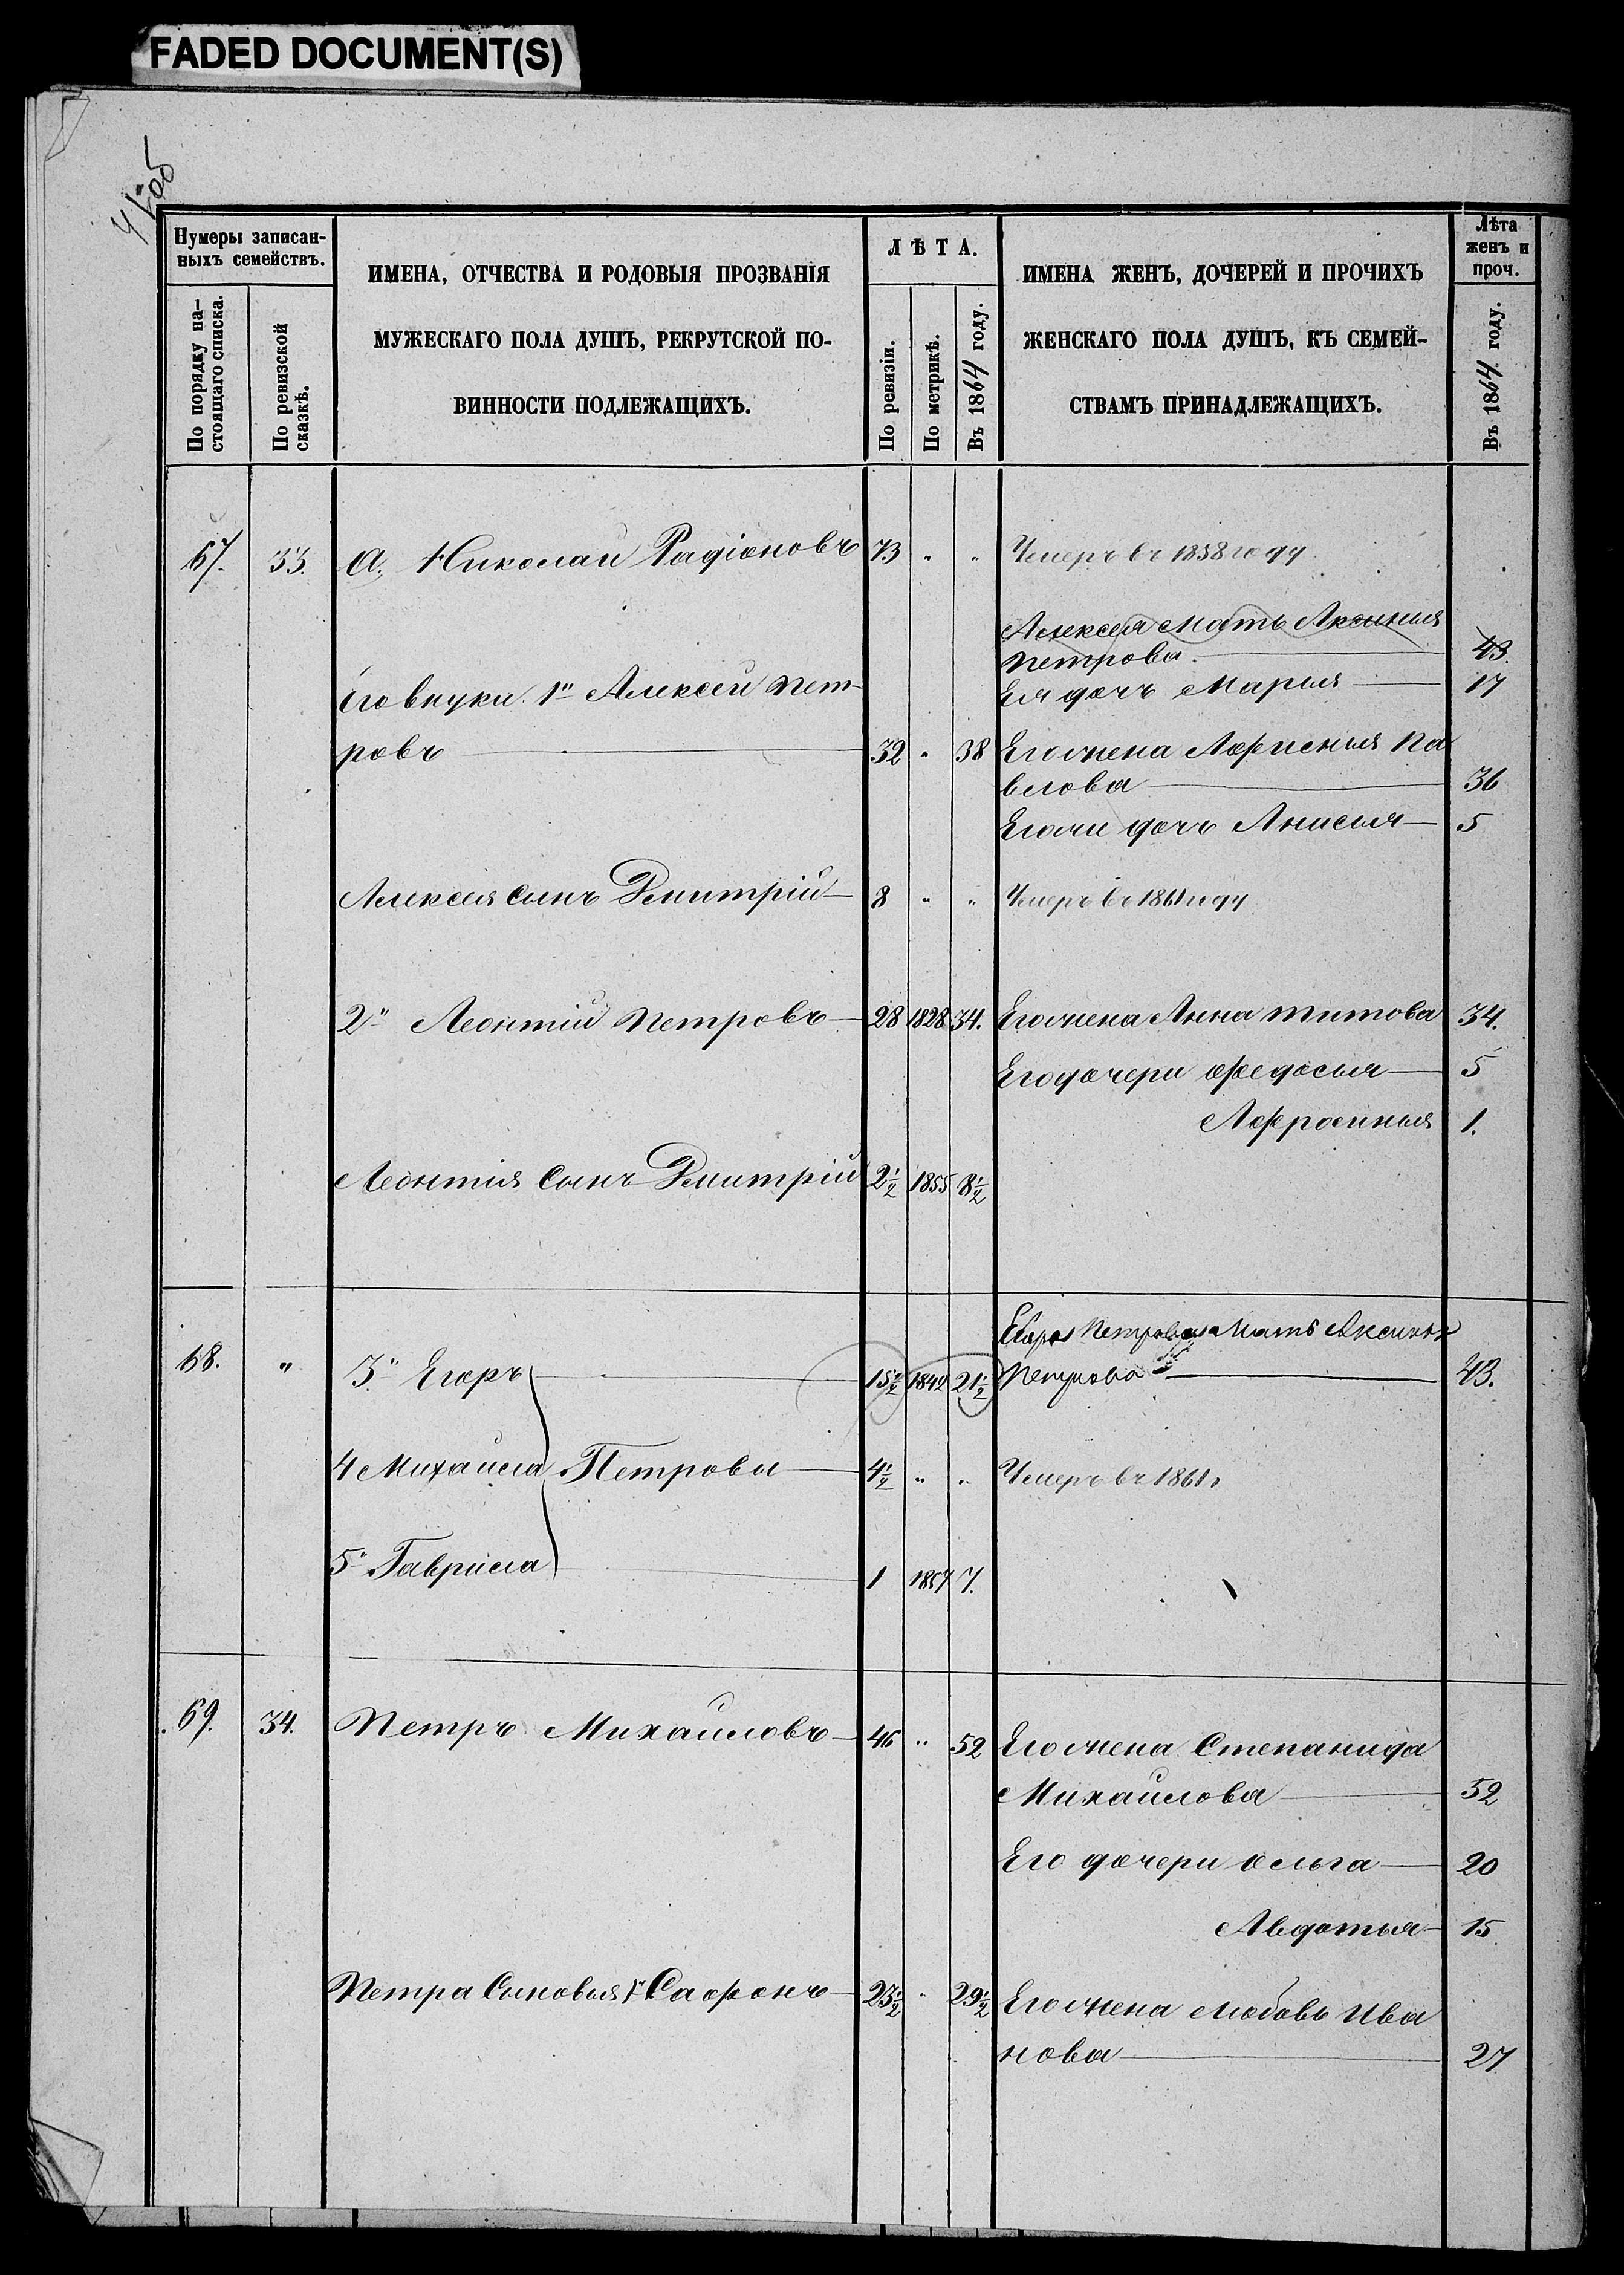 FADED DOCUMENT(S)
Нумеры записан-
ныхъ семействъ.
По порядку на-
стоящаго списка.
По ревизской
сказкѣ.
ИМЕНА, ОТЧЕСТВА И РОДОВЫЯ ПРОЗВАНІЯ
МУЖЕСКАГО ПОЛА ДУШЪ, РЕКРУТСКОЙ ПО-
ВИННОСТИ ПОДЛЕЖАЩИХЪ.
ЛѢТА.
По ревизіи.
По метрикѣ.
Въ 1864 году.
ИМЕНА ЖЕНЪ, ДОЧЕРЕЙ И ПРОЧИХЪ
ЖЕНСКАГО ПОЛА ДУШЪ, КЪ СЕМЕЙ-
СТВАМЪ ПРИНАДЛЕЖАЩИХЪ.
Лѣта
женъ и
проч.
Въ 1864 году.
67. 33. а. Николай Радіоновъ 73 " " Умеръ въ 1858 году
Алексея мать Аксинья
Петрова 43.
Ея дочь Марья 17
Его внуки 1" Алексей Пет-
ровъ 32 " 38 Его жена Афиснья Па
влова 36
Его дочь Анисья 5
Алексея сынъ Дмитрій 8 " " Умеръ въ 1861 году
2" Леонтій Петровъ 28 1828 34. Его жена Анна Титова 34.
Его дочери Федосья 5
Афросинья 1.
Леонтія сынъ Дмитрій 2½ 1855 8½
68. " 3" Егоръ 15½ 1842 21½ Егора Петрова мать Аксинья
Петрова 43.
4 Михаила Петровы 4½ " " Умеръ въ 1861
5" Гаврила 1 1857 7.
69. 34. Петръ Михайловъ 46 " 52 Его жена Степанида
Михайлова 52
Его дочери Ольга 20
Авдотья 15
Петра сыновья 1" Сафонъ 23½ " 29½ Его жена Любовь Ива
нова 27